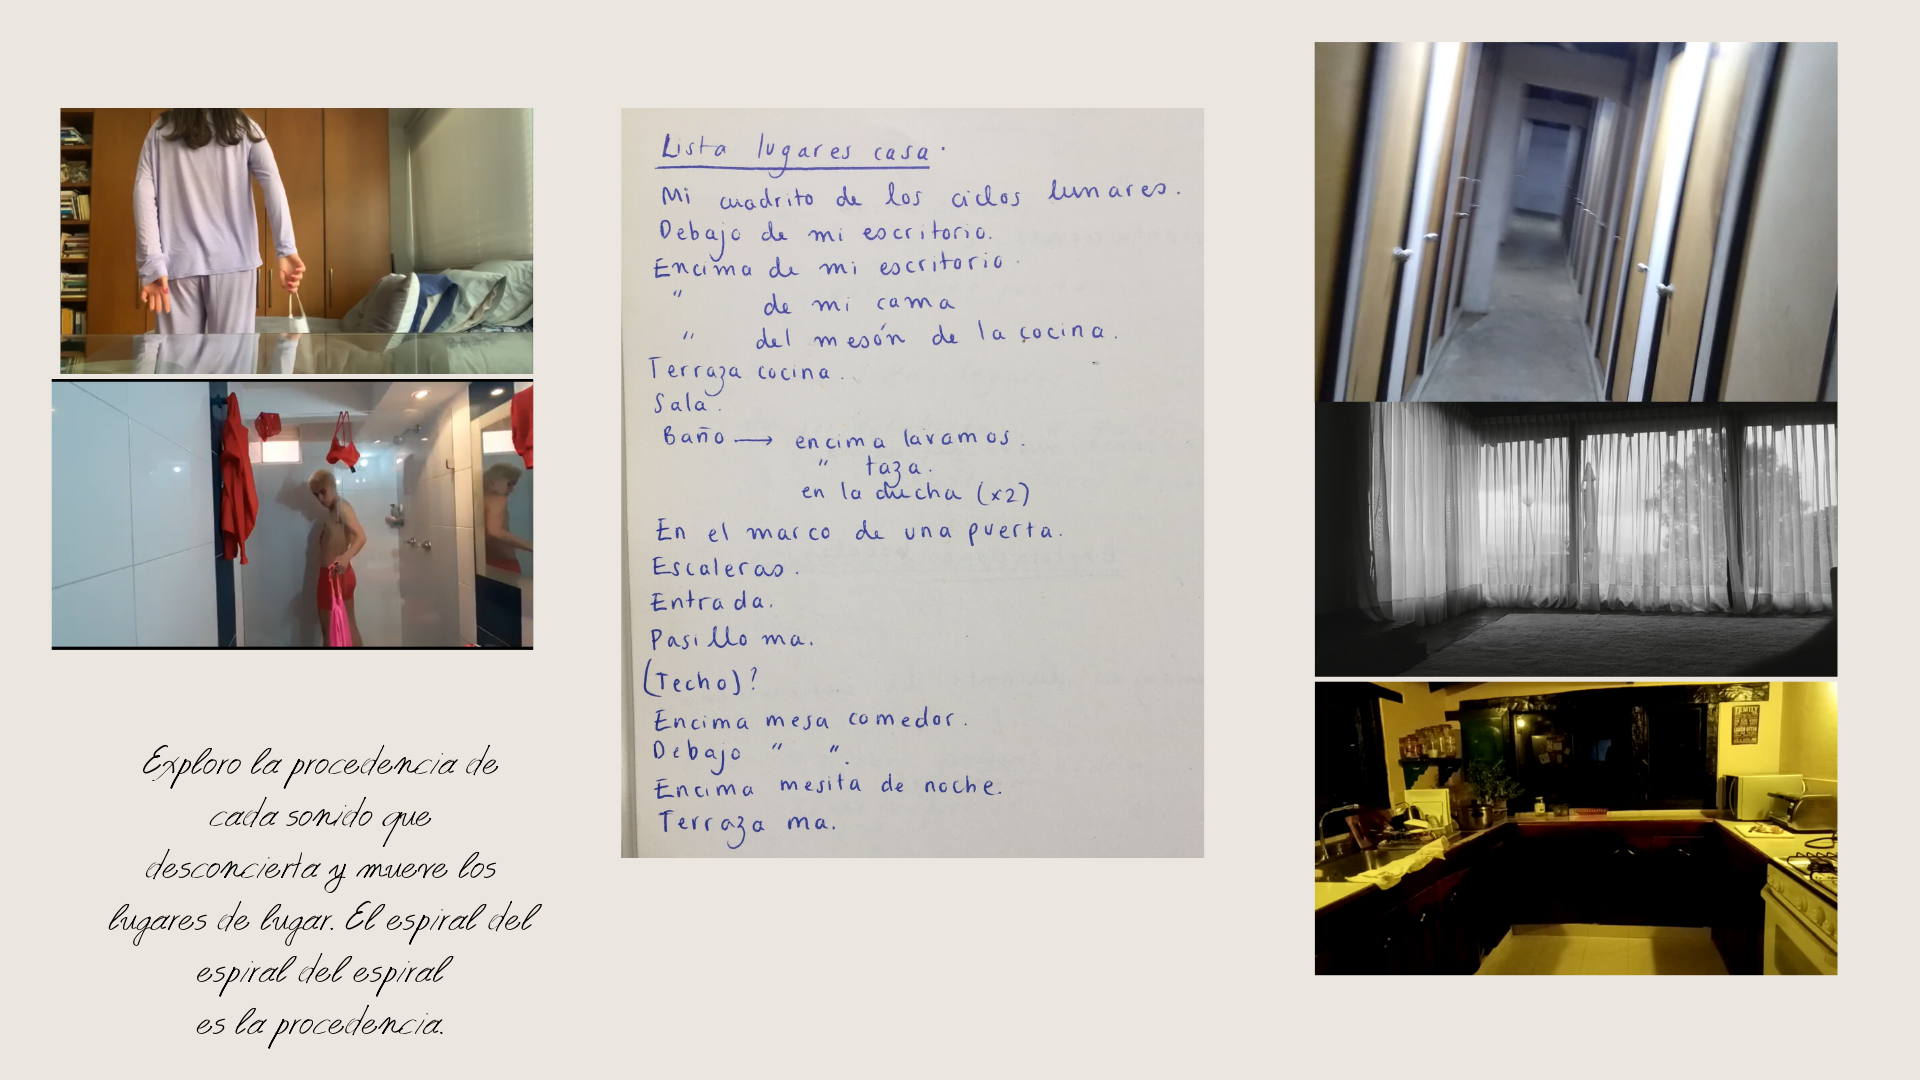 Lista lugares casa.
Mi cuadrito de los ciclos lunares.
Debajo de mi escritorio.
Encima de mi escritorio.
" de mi cama
" del mesón de la cocina.
Terraza cocina.
Sala.
Baño → encima lavamos.
" taza.
en la ducha (x2)
En el marco de una puerta.
Escaleras.
Entrada.
Pasillo ma.
(Techo)?
Encima mesa comedor.
Debajo " ".
Encima mesita de noche.
Terraza ma.
Exploro la procedencia de
cada sonido que
desconcierta y mueve los
lugares de lugar. El espiral del
espiral del espiral
es la procedencia.
FAMILY